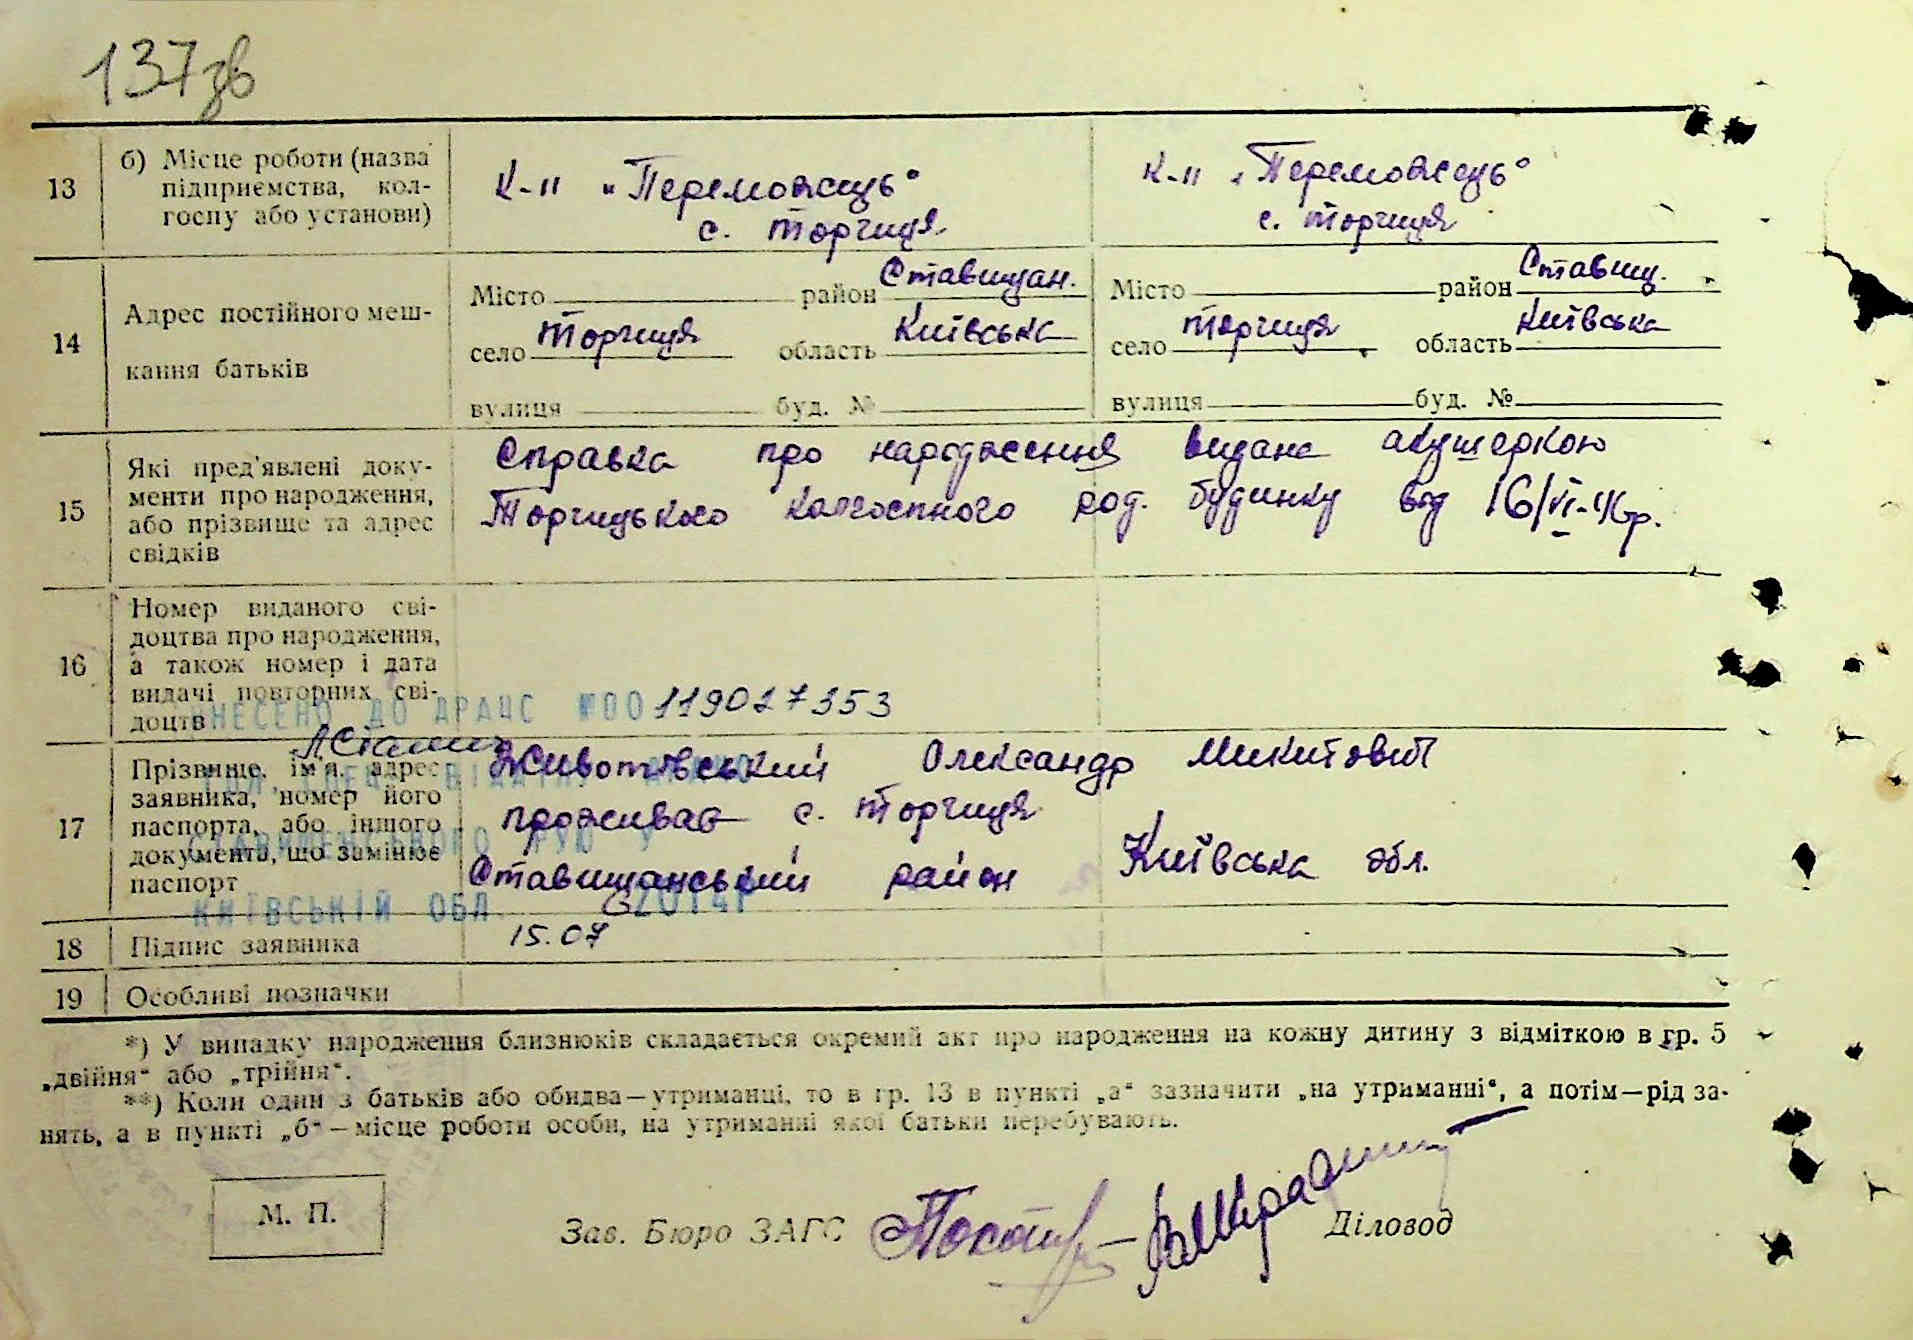 137зв
13 б) Місце роботи (назва підприємства, кол-
госпу або установи)
К-п „Переможець“
с. Торчиця
К-п „Переможець“
с. Торчиця
14 Адрес постійного меш-
кання батьків
Місто район Ставищан.
село Торчиця область Київська
вулиця буд. №
Місто район Ставищ.
село Торчиця область Київська
вулиця буд. №
15 Які пред'явлені доку-
менти про народження,
або прізвище та адрес
свідків
Справка про народження видана акушеркою
Торчицького колгоспного род. будинку від 16/VI-46р.
16 Номер виданого сві-
доцтва про народження,
а також номер і дата
видачі повторних сві-
доцтв
ВНЕСЕНО ДО ДРАЦС №00119027353
17 Прізвище, ім'я, адрес
заявника, номер його
паспорта, або іншого
документа, що замінює
паспорт
Животівський Олександр Микитович
проживає с. Торчиця
Ставищанський район Київська обл.
КИЇВСЬКІЙ ОБЛ. 2014Р
18 Підпис заявника
15.07
19 Особливі позначки
*) У випадку народження близнюків складається окремий акт про народження на кожну дитину з відміткою в гр. 5
„двійня“ або „трійня“.
**) Коли один з батьків або обидва—утриманці, то в гр. 13 в пункті „а“ зазначити „на утриманні“, а потім—рід за-
нять, а в пункті „б“—місце роботи особи, на утриманні якої батьки перебувають.
М. П.
Зав. Бюро ЗАГС Діловод